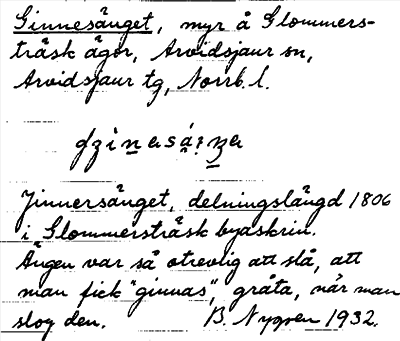 Ginnesänget, myr å Glommers-
träsk ägor, Arvidsjaur sn,
Arvidsjaur tg, Norrb. l.
Jinnersänget, delningslängd 1806
i Glommersträsk byaskrin.
Ängen var så otrevlig att slå, att
man fick "ginnas", gråta, når man
slog den. B. Nygren 1932.